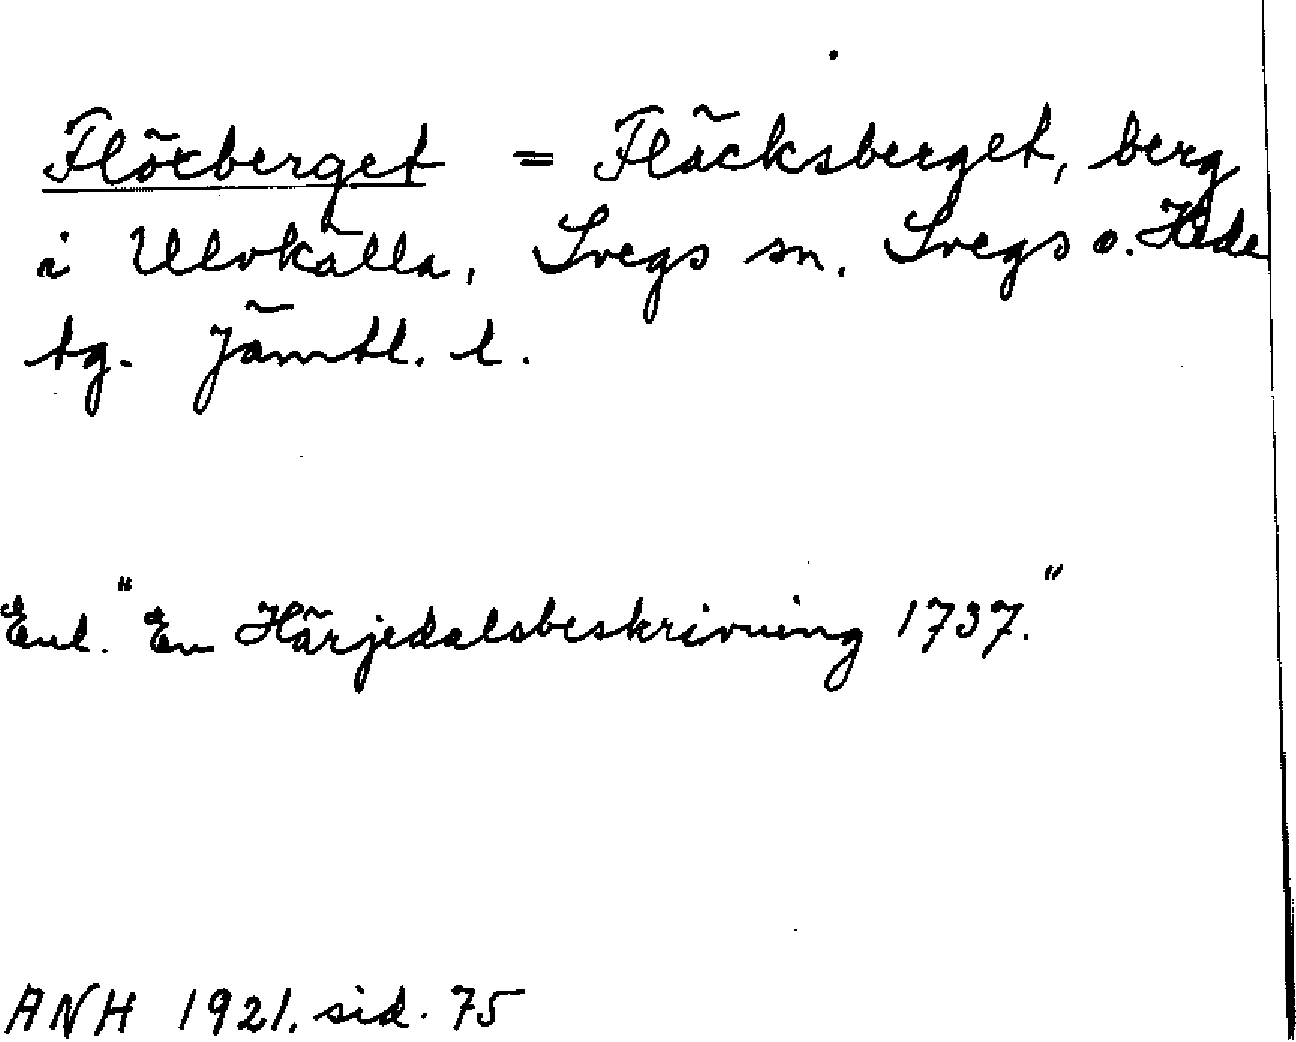 Flöxberget = Fläcksberget, berg
i Ulvkälla, Svegs sn. Svegs o. Hede
tg. Jämtl. l.
Enl. "En Härjedalsbeskrivning 1737."
ANH 1921. sid. 75